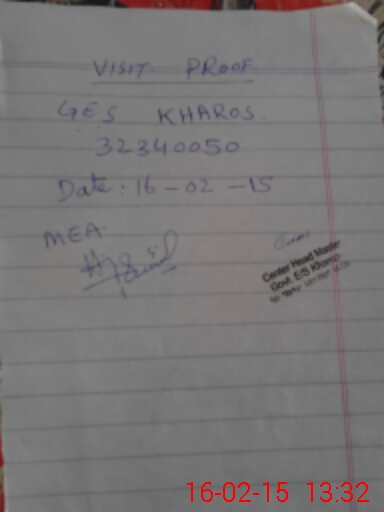 VISIT PROOF
GES KHAROS
32340050
Date: 16-02-15
MEA
Center Head Master
Govt. E/S
16-02-15 13:32